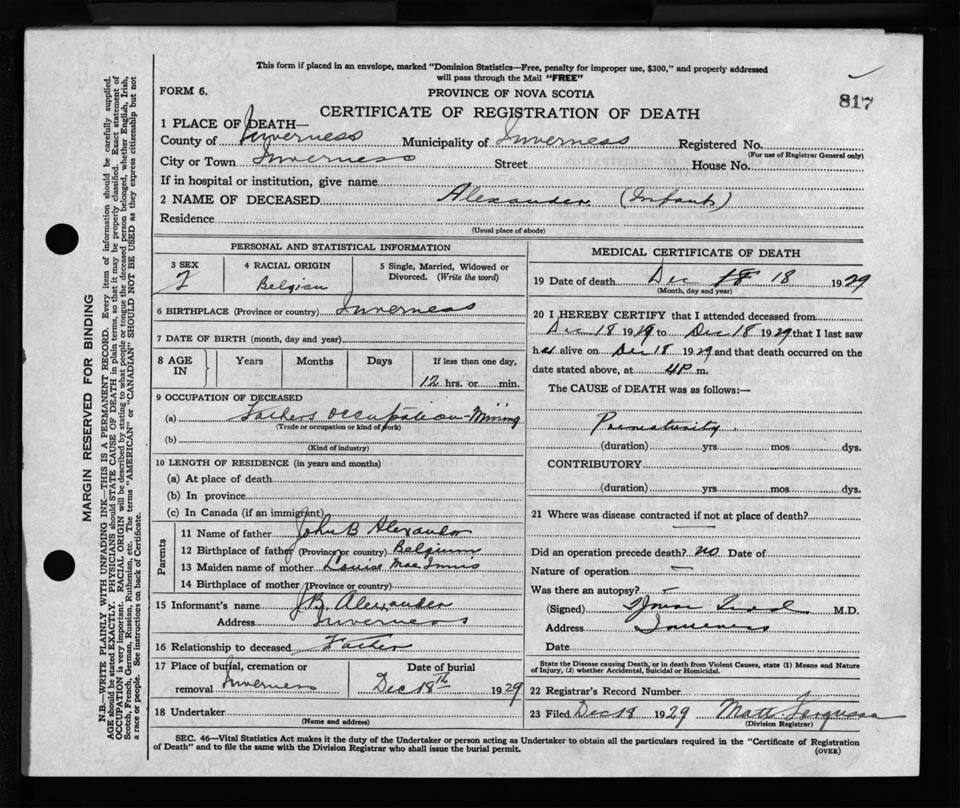 This form if placed in an envelope, marked "Dominion Statistics—Free, penalty for improper use, $300," and properly addressed
will pass through the Mail "FREE"
FORM 6.
PROVINCE OF NOVA SCOTIA
817
CERTIFICATE OF REGISTRATION OF DEATH
1 PLACE OF DEATH—
County of Inverness Municipality of Inverness Registered No.
(For use of Registrar General only)
City or Town Inverness Street House No.
If in hospital or institution, give name
2 NAME OF DECEASED Alexander (Infant)
Residence
(Usual place of abode)
PERSONAL AND STATISTICAL INFORMATION
3 SEX F
4 RACIAL ORIGIN Belgian
5 Single, Married, Widowed or Divorced. (Write the word)
6 BIRTHPLACE (Province or country) Inverness
7 DATE OF BIRTH (month, day and year)
8 AGE IN Years Months Days If less than one day,
12 hrs. or min.
9 OCCUPATION OF DECEASED
(a) Fathers occupation Mining
(Trade or occupation or kind of work)
(b)
(Kind of industry)
10 LENGTH OF RESIDENCE (in years and months)
(a) At place of death
(b) In province
(c) In Canada (if an immigrant)
Parents
11 Name of father John B Alexander
12 Birthplace of father (Province or country) Belgium
13 Maiden name of mother Louise MacInnis
14 Birthplace of mother (Province or country)
15 Informant's name J.B. Alexander
Address Inverness
16 Relationship to deceased Father
17 Place of burial, cremation or removal Inverness
Date of burial Dec 18th 1929
18 Undertaker
(Name and address)
MEDICAL CERTIFICATE OF DEATH
19 Date of death Dec 18 1929
(Month, day and year)
20 I HEREBY CERTIFY that I attended deceased from
Dec 18 1929 to Dec 18 1929 that I last saw
her alive on Dec 18 1929 and that death occurred on the
date stated above, at 4P m.
The CAUSE of DEATH was as follows:—
Prematurity
(duration) yrs mos dys.
CONTRIBUTORY
(duration) yrs mos dys.
21 Where was disease contracted if not at place of death?
Did an operation precede death? no Date of
Nature of operation —
Was there an autopsy? —
(Signed) M.D.
Address Inverness
Date
State the Disease causing Death, or in death from Violent Causes, state (1) Means and Nature
of Injury, (2) whether Accidental, Suicidal or Homicidal.
22 Registrar's Record Number
23 Filed Dec 19 1929 Matt Ferguson
(Division Registrar)
SEC. 46—Vital Statistics Act makes it the duty of the Undertaker or person acting as Undertaker to obtain all the particulars required in the "Certificate of Registration
of Death" and to file the same with the Division Registrar who shall issue the burial permit.
(OVER)
MARGIN RESERVED FOR BINDING
N.B.—WRITE PLAINLY WITH UNFADING INK—THIS IS A PERMANENT RECORD. Every item of information should be carefully supplied.
AGE should be stated EXACTLY. PHYSICIANS should STATE CAUSE OF DEATH in plain terms, so that it may be properly classified. Exact statement of
OCCUPATION is very important. RACIAL ORIGIN will be described by stating to what people or tongue the deceased person belonged, whether English, Irish,
Scotch, French, German, Russian, Ruthenian, etc. The terms "AMERICAN" or "CANADIAN" SHOULD NOT BE USED as they express citizenship but not
a race or people. See instructions on back of Certificate.